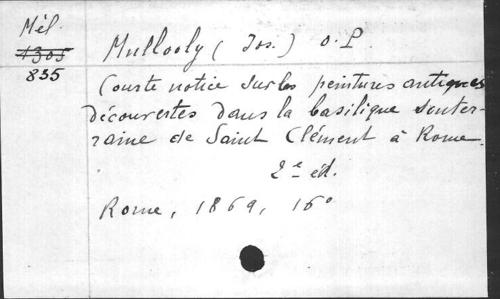 Mél.
1305
835
Mullooly (Jos.) O. P.
Courte notice sur les peintures antiques
découvertes dans la basilique souter-
raine de Saint Clément à Rome.
2e éd.
Rome, 1869, 16°